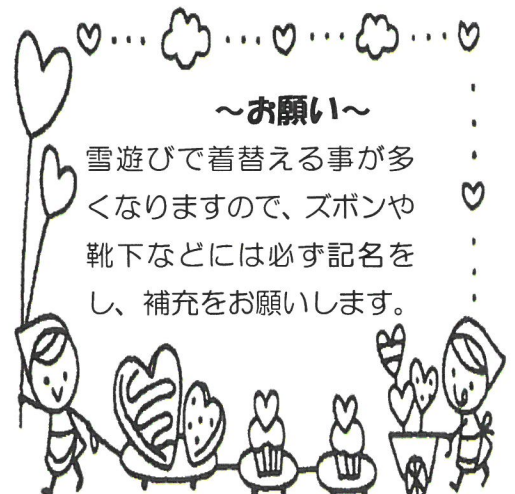 ～お願い～
雪遊びで着替える事が多
くなりますので、ズボンや
靴下などには必ず記名を
し、補充をお願いします。